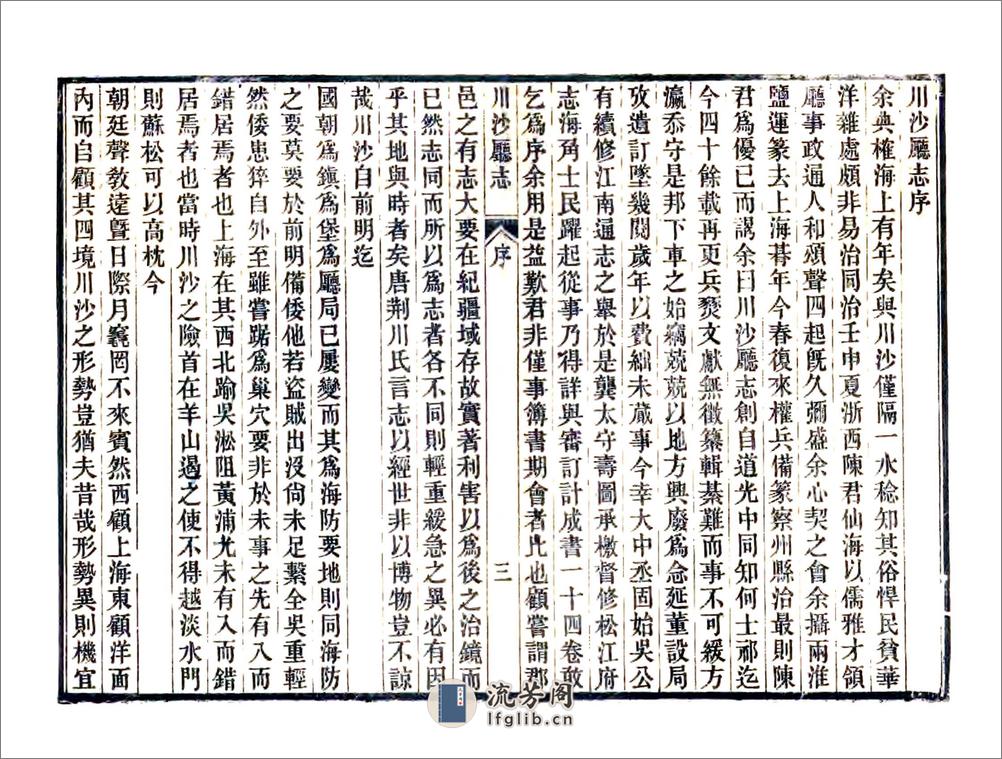 川沙廳志序
余典榷海上有年矣與川沙僅隔一水稔知其俗悍民貧華
洋雜處頗非易治同治壬申夏浙西陳君仙海以儒雅才領
廳事政通人和頌聲四起旣久彌盛余心契之會余攝兩淮
鹽運篆去上海朞年今春復來權兵備篆察州縣治最則陳
君爲優已而謁余曰川沙廳志創自道光中同知何士祁迄
今四十餘載再更兵燹文獻無徵纂輯綦難而事不可緩方
瀛忝守是邦下車之始竊兢兢以地方興廢爲念延董設局
攷遺訂墜幾閱歲年以費絀未蕆事今幸大中丞固始吳公
有續修江南通志之舉於是龔太守壽圖承檄督修松江府
志海角士民躍起從事乃得詳與審訂計成書一十四卷敢
乞爲序余用是益歎君非僅事簿書期會者比也顧嘗謂郡
川沙廳志 序 三
邑之有志大要在紀疆域存故實著利害以爲後之治鏡而
已然志同而所以爲志者各不同則輕重緩急之異必有因
乎其地與時者矣唐荆川氏言志以經世非以博物豈不諒
哉川沙自前明迄
國朝爲鎭爲堡爲廳局已屢變而其爲海防要地則同海防
之要莫要於前明備倭他若盜賊出沒尙未足繫全吳重輕
然倭患猝自外至雖嘗踞爲巢穴要非於未事之先有入而
錯居焉者也上海在其西北踰吳淞阻黃浦尤未有入而錯
居焉者也當時川沙之險首在羊山遏之使不得越淡水門
則蘇松可以高枕今
朝廷聲敎遠曁日際月竁罔不來賓然西顧上海東顧洋面
內而自顧其四境川沙之形勢豈猶夫昔哉形勢異則機宜
流芳阁
lfglib.cn